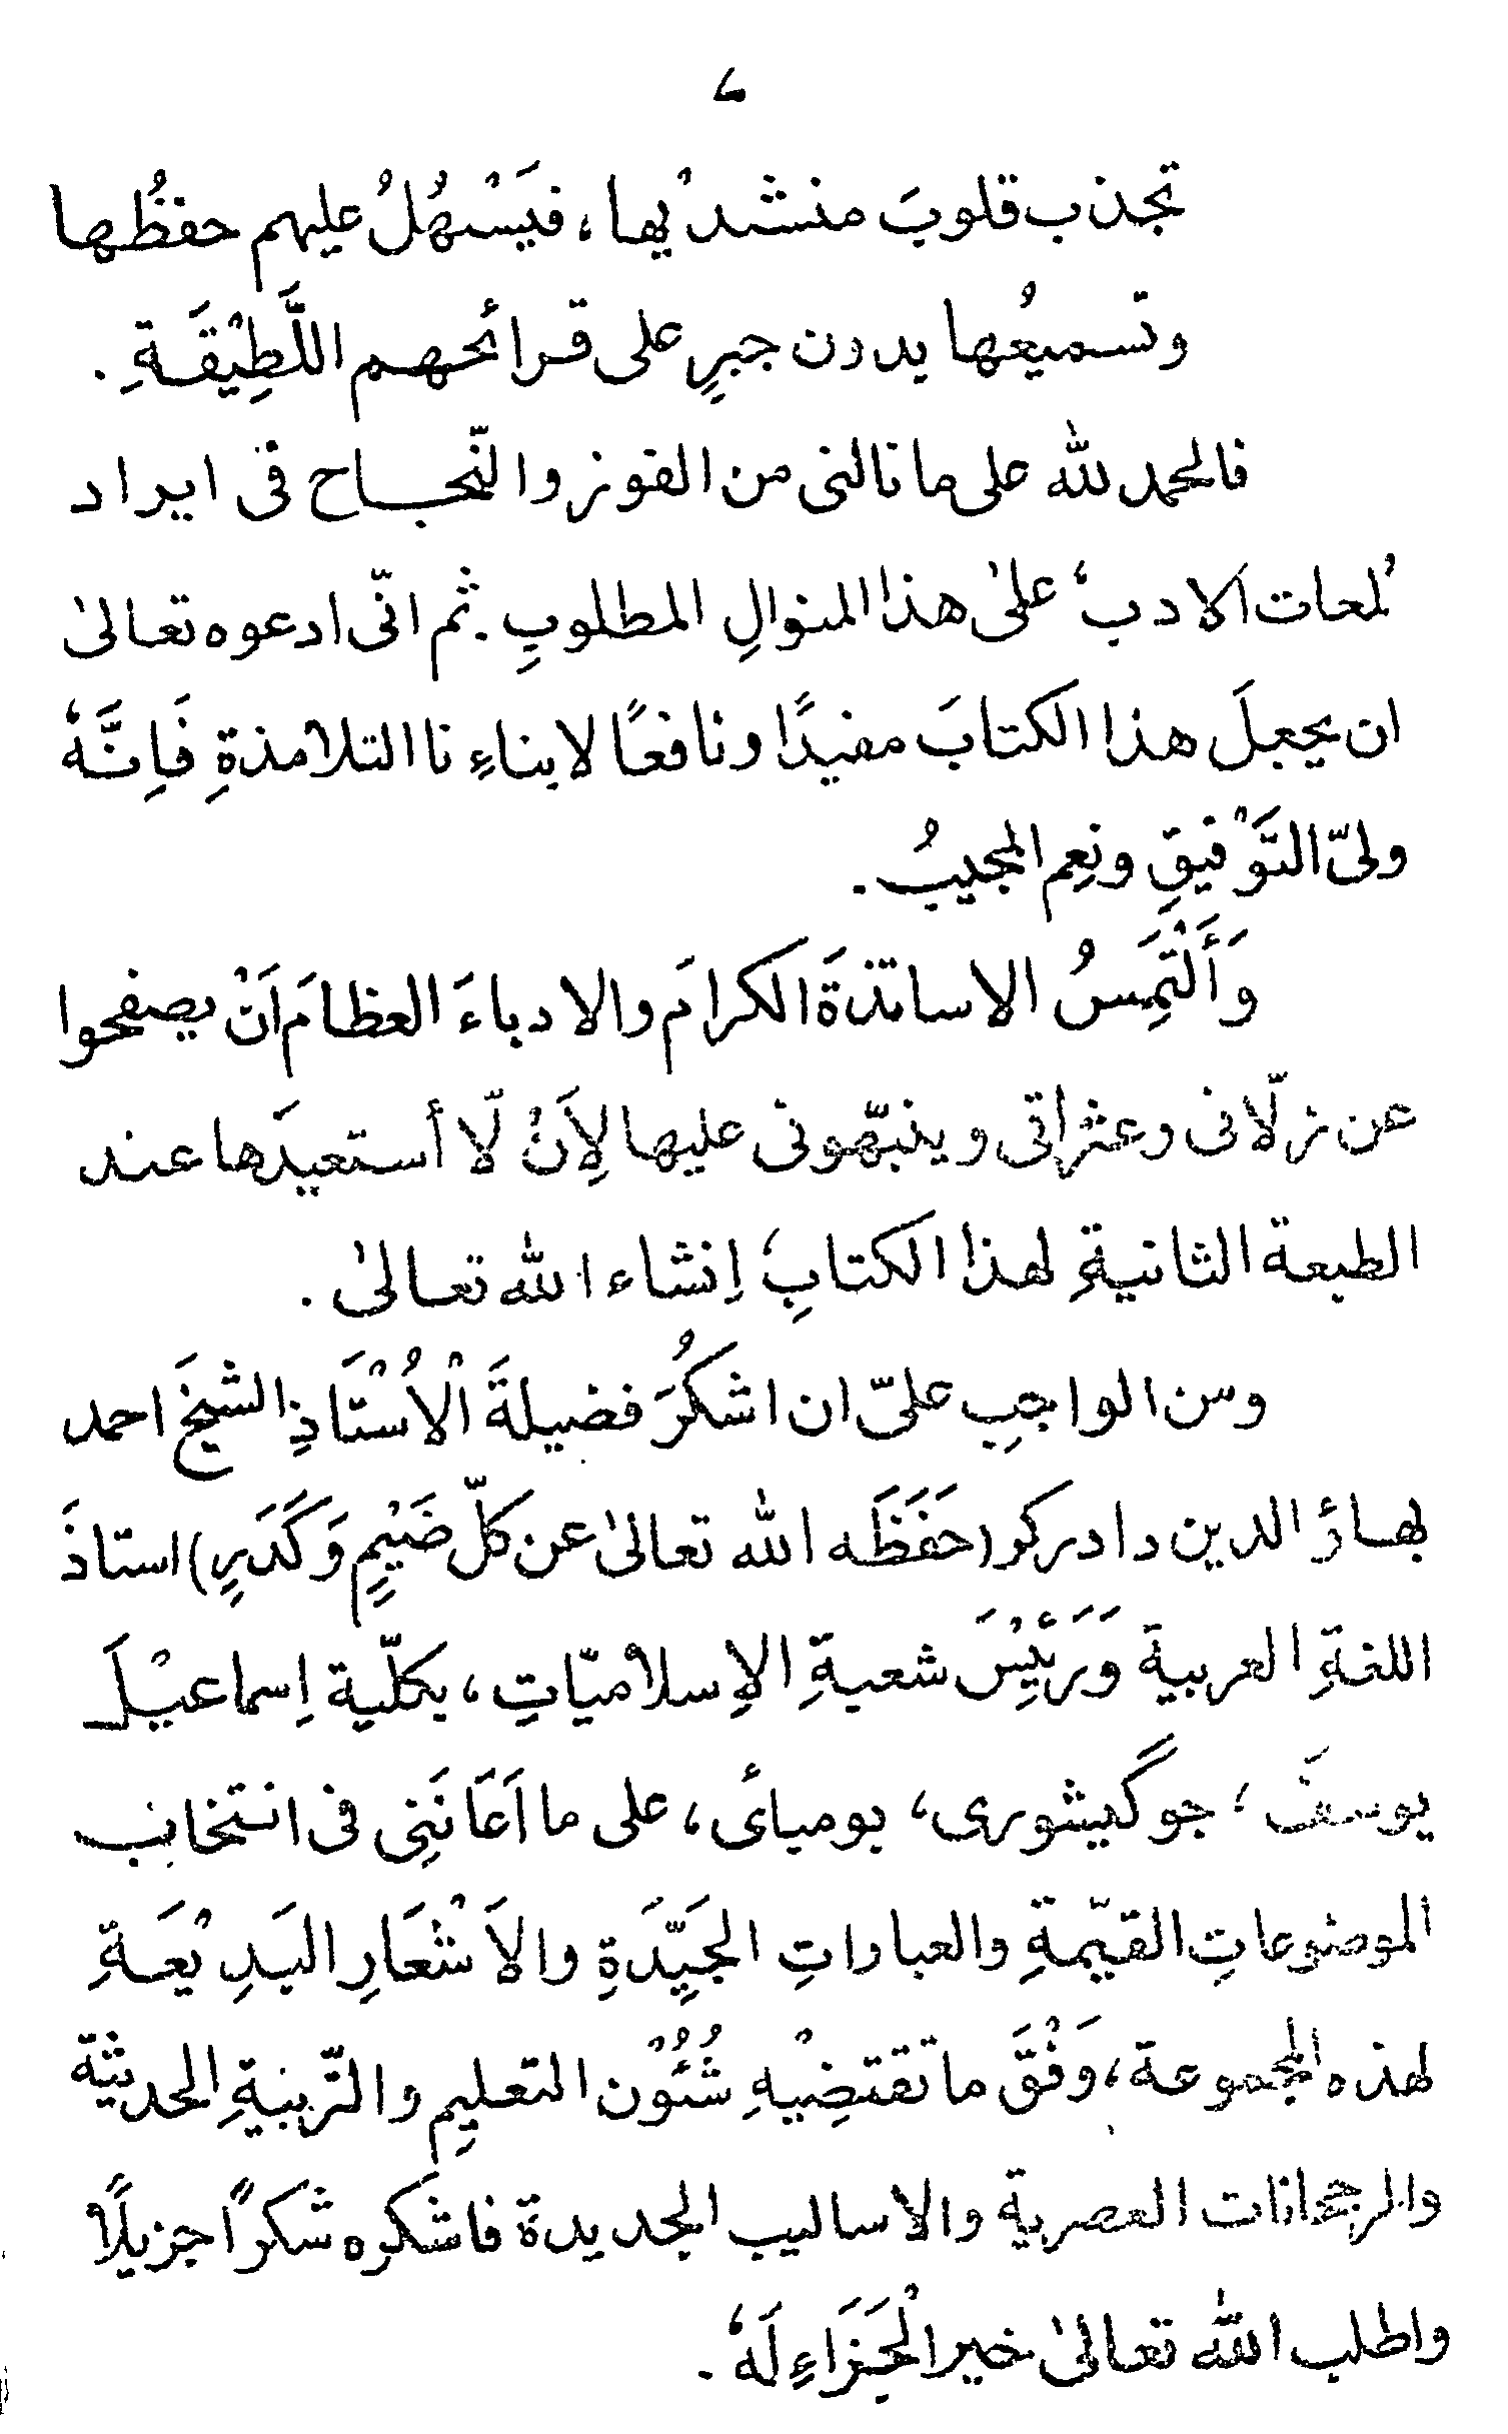 ے
تجذب قلوبَ منشدْيها، فيَسْهُلُ عليهم حفظُها
وتسميعُها بدون جبرٍ على قرائحهم اللَّطِيْفَةِ.
فالحمد لله على ما نالنى من الفوز والنّجاح فى ايراد
لمعات الادب، علىٰ هذا المنوالِ المطلوبِ. ثم انّى ادعوه تعالىٰ
ان يجعلَ هذا الكتابَ مفيدًا ونافعًا لابناءِ نا التلامذةِ فَاِنَّهٗ
ولىّ التَّوْفيقِ ونِعم المجيبُ.
وَأَلْتَمِسُ الاساتذةَ الكرامَ والادباءَ العظامَ اَنْ يصفحوا
عن زلّاتى وعثراتى وينبّهونى عليها لِاَنْ لّا أستعيدَها عند
الطبعة الثانيةِ لهذا الكتابِ، اِنشاء الله تعالىٰ.
ومن الواجبِ علىّ ان اشكُرَ فضيلةَ الْاُسْتَاذِ الشيخَ احمد
بهاؤ الدين دادركر (حَفَظَه الله تعالىٰ عن كلّ ضَيْمٍ وَكَدَرٍ) استاذَ
اللغةِ العربية وَرَئِيْسَ شعبةِ الاِسلاميّاتِ، بكلّية اِسماعيْلَ
يوسفَ، جوگيشورى، بومبائ، على ما اَعَانَنِى فى انتخابِ
الموضوعاتِ القيّمةِ والعباراتِ الجَيِّدَةِ والاَشْعَارِ البَدِيْعَةِ
لهذه المجموعة، وَفْقَ ما تقتضِيْهِ شُئُوْن التعليمِ والتّربيةِ الحديثة
والرجحانات العصرية والاساليب الجديدة فاشكره شكرًا جزيلًا
واطلب الله تعالىٰ خير الْجَزَاءِ لَهٗ.